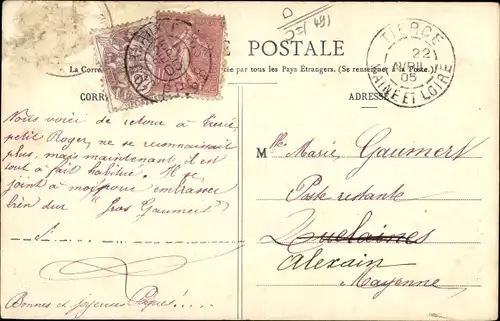 D
E POSTALE
TIERCÉ
22
AVRIL
05
MAINE ET LOIRE
La Corre ce par tous les Pays Étrangers. (Se renseigner à la Poste)
CORR
ADRESSE
Nous voici de retour à Tiercé,
petit Roger, ne se reconnaissait
plus, mais maintenant il est
tout à fait habitué. Il se
joint à moi pour embrasser
bien dur "Gros Gaumert"
Mlle Marie, Gaumert
Poste restante
Nuelaines
Alexain
Mayenne
Bonnes et joyeuses Pâques!....